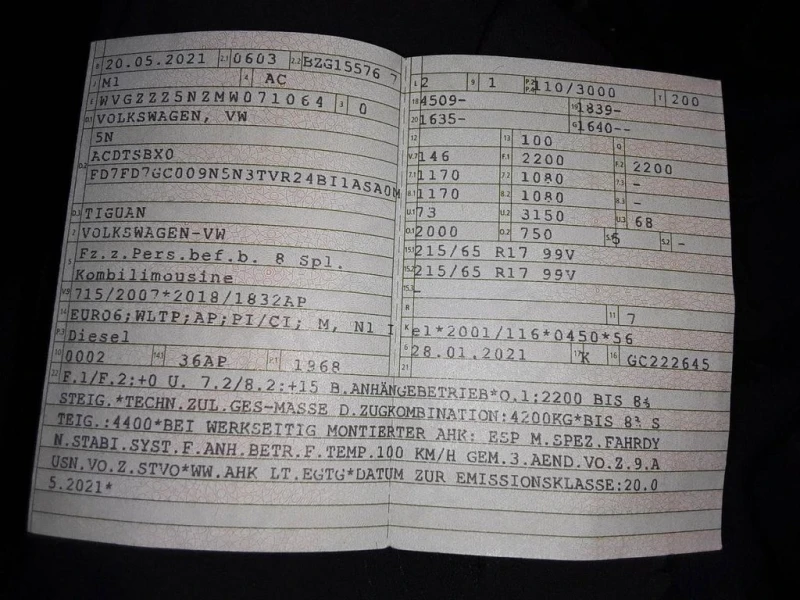 B 20.05.2021 2.1 0603 2.2 BZG15576 7
J M1 4 AC
E WVGZZZ5NZMW071064 3 0
D.1 VOLKSWAGEN, VW
5N
D.2 ACDTSBX0
FD7FD7GC009N5N3TVR24BI1ASA0M
D.3 TIGUAN
2 VOLKSWAGEN-VW
5 Fz.z.Pers.bef.b. 8 Spl.
Kombilimousine
V.9 715/2007*2018/1832AP
14 EURO6;WLTP;AP;PI/CI; M, N1 I
P.3 Diesel
10 0002 14.1 36AP P.1 1968
L 2 9 1 P.2 P.4 110/3000 T 200
18 4509- 19 1839-
20 1635- G 1640--
12 13 100 Q
V.7 146 F.1 2200 F.2 2200
7.1 1170 7.2 1080 7.3 -
8.1 1170 8.2 1080 8.3 -
U.1 73 U.2 3150 U.3 68
O.1 2000 O.2 750 S.1 5 S.2 -
15.1 215/65 R17 99V
15.2 215/65 R17 99V
15.3 -
R 11 7
K e1*2001/116*0450*56
6 28.01.2021 17 K 16 GC222645
21
22 F.1/F.2:+0 U. 7.2/8.2:+15 B.ANHÄNGEBETRIEB*O.1:2200 BIS 8%
STEIG.*TECHN.ZUL.GES-MASSE D.ZUGKOMBINATION:4200KG*BIS 8% S
TEIG.:4400*BEI WERKSEITIG MONTIERTER AHK: ESP M.SPEZ.FAHRDY
N.STABI.SYST.F.ANH.BETR.F.TEMP.100 KM/H GEM.3.AEND.VO.Z.9.A
USN.VO.Z.STVO*WW.AHK LT.EGTG*DATUM ZUR EMISSIONSKLASSE:20.0
5.2021*